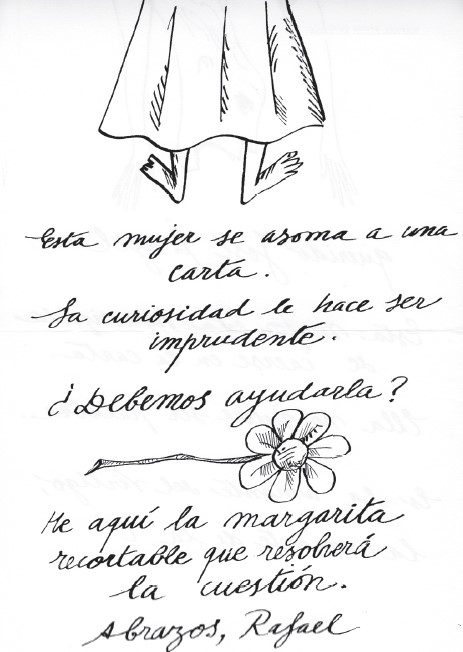 Esta mujer se asoma a una
carta.
La curiosidad le hace ser
imprudente.
¿Debemos ayudarla?
He aquí la margarita
recortable que resolverá
la cuestión.
Abrazos, Rafael